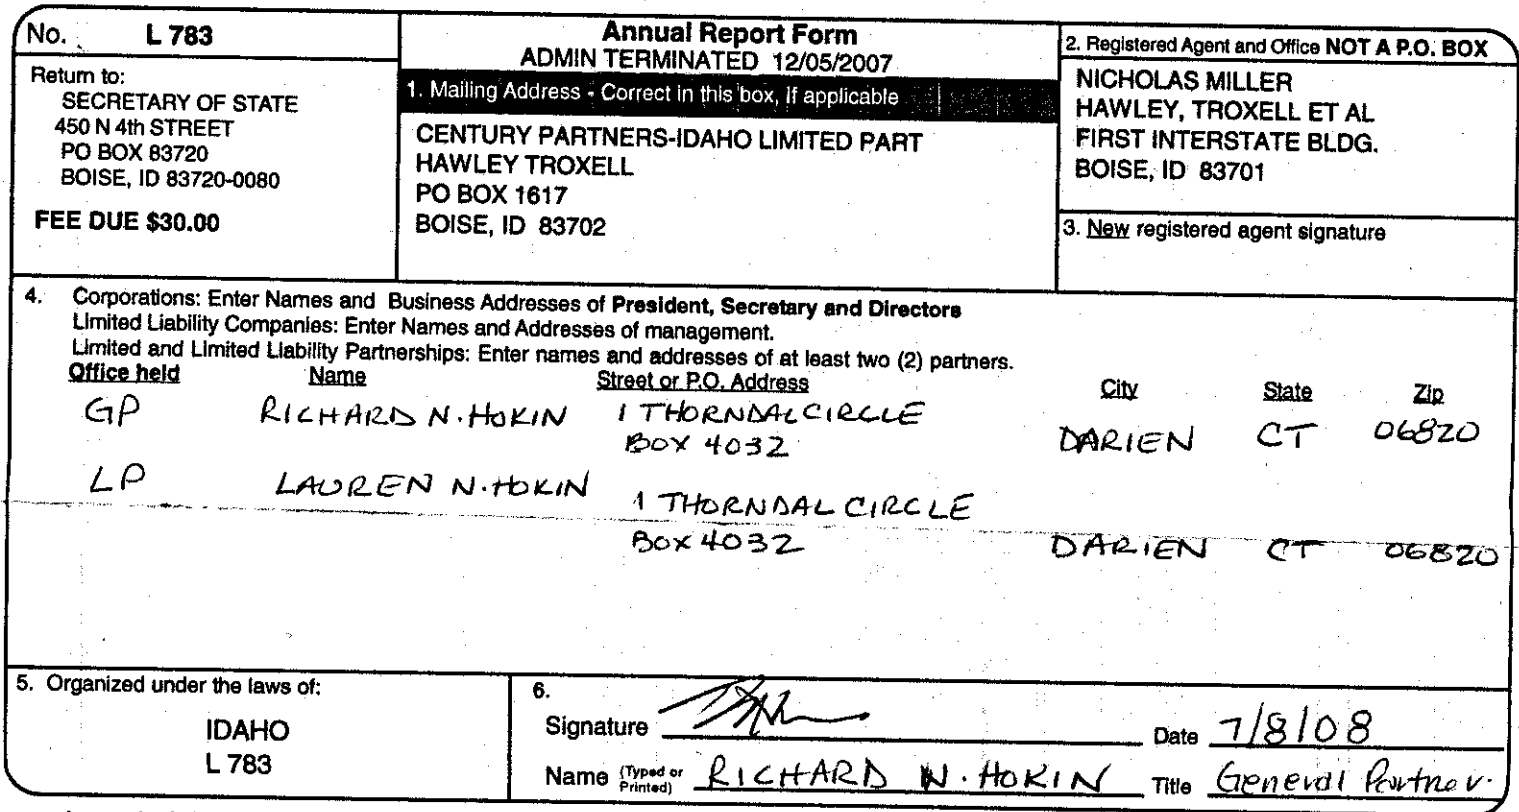 No. L 783
Return to:
SECRETARY OF STATE
450 N 4th STREET
PO BOX 83720
BOISE, ID 83720-0080
FEE DUE $30.00
Annual Report Form
ADMIN TERMINATED 12/05/2007
1. Mailing Address - Correct in this box, if applicable
CENTURY PARTNERS-IDAHO LIMITED PART
HAWLEY TROXELL
PO BOX 1617
BOISE, ID 83702
2. Registered Agent and Office NOT A P.O. BOX
NICHOLAS MILLER
HAWLEY, TROXELL ET AL
FIRST INTERSTATE BLDG.
BOISE, ID 83701
3. New registered agent signature
4. Corporations: Enter Names and Business Addresses of President, Secretary and Directors
Limited Liability Companies: Enter Names and Addresses of management.
Limited and Limited Liability Partnerships: Enter names and addresses of at least two (2) partners.
Office held Name Street or P.O. Address City State Zip
GP RICHARD N. HOKIN 1 THORNDAL CIRCLE
BOX 4032 DARIEN CT 06820
LP LAUREN N. HOKIN 1 THORNDAL CIRCLE
BOX 4032 DARIEN CT 06820
5. Organized under the laws of:
IDAHO
L 783
6.
Signature Date 7/8/08
Name (Typed or Printed) RICHARD N. HOKIN Title General Partner.